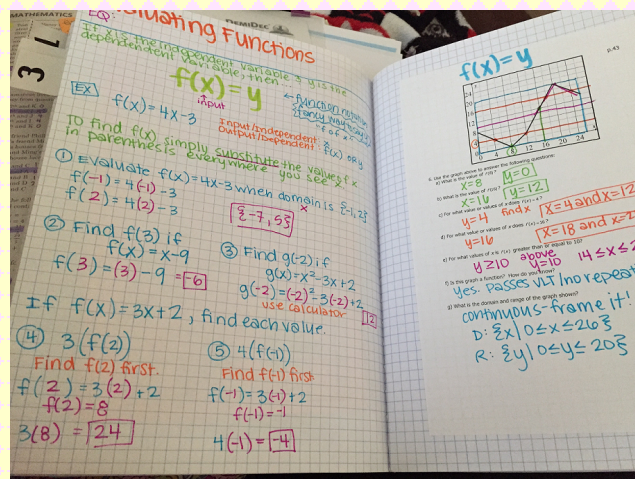 MATHEMATICS
DEMIDEC
EQ:
Evaluating Functions
If x is the independent variable & y is the
dependendent variable, then
f(x)=y
input
← function notation
"f of x"
EX
f(x)=4x-3
Input/Independent: x
Output/Dependent: f(x) or y
To find f(x) simply substitute the values of x
in parenthesis everywhere you see x
① Evaluate f(x)=4x-3 when domain is {-1,2}
x
f(-1)=4(-1)-3
f(2)=4(2)-3
{-7,5}
② Find f(3) if
f(x)=x-9
f(3)=(3)-9=-6
③ Find g(-2) if
g(x)=x²-3x+2
g(-2)=(-2)²-3(-2)+2
use calculator
12
If f(x)=3x+2, find each value.
④ 3(f(2))
Find f(2) first.
f(2)=3(2)+2
f(2)=8
3(8)=24
⑤ 4(f(-1))
Find f(-1) first
f(-1)=3(-1)+2
f(-1)=-1
4(-1)=-4
p.43
f(x)=y
24
20
16
12
8
4
0 4 8 12 16 20 24
6. Use the graph above to answer the following questions:
x=8 y=0
x=16 y=12
c) For what value or values of x does
y=4 find x x=4 and x=12
d) For what value or values of x does
y=16 x=18 and x=2
e) For what values of x is f(x) greater than or equal to 10?
y≥10 above y=10 14≤x≤2
f) Is this graph a function? How do you know?
yes. passes VLT/no repea
g) What is the domain and range of the graph shown?
continuous-frame it!
D: {x|0≤x≤26}
R: {y|0≤y≤20}